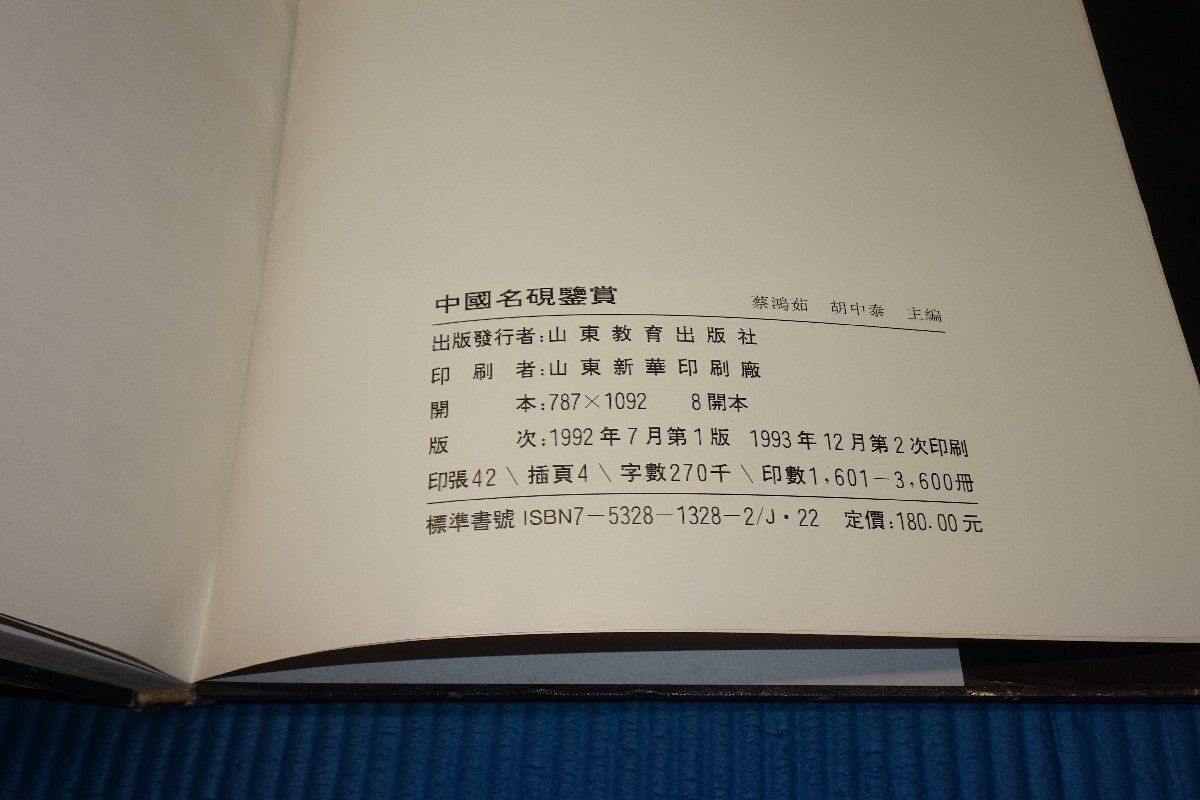 中國名硯鑒賞 蔡鴻茹 胡中泰 主編
出版發行者:山東教育出版社
印刷者:山東新華印刷廠
開本:787×1092 8開本
版次:1992年7月第1版 1993年12月第2次印刷
印張42\插頁4\字數270千\印數1,601-3,600冊
標準書號 ISBN7-5328-1328-2/J·22 定價:180.00元